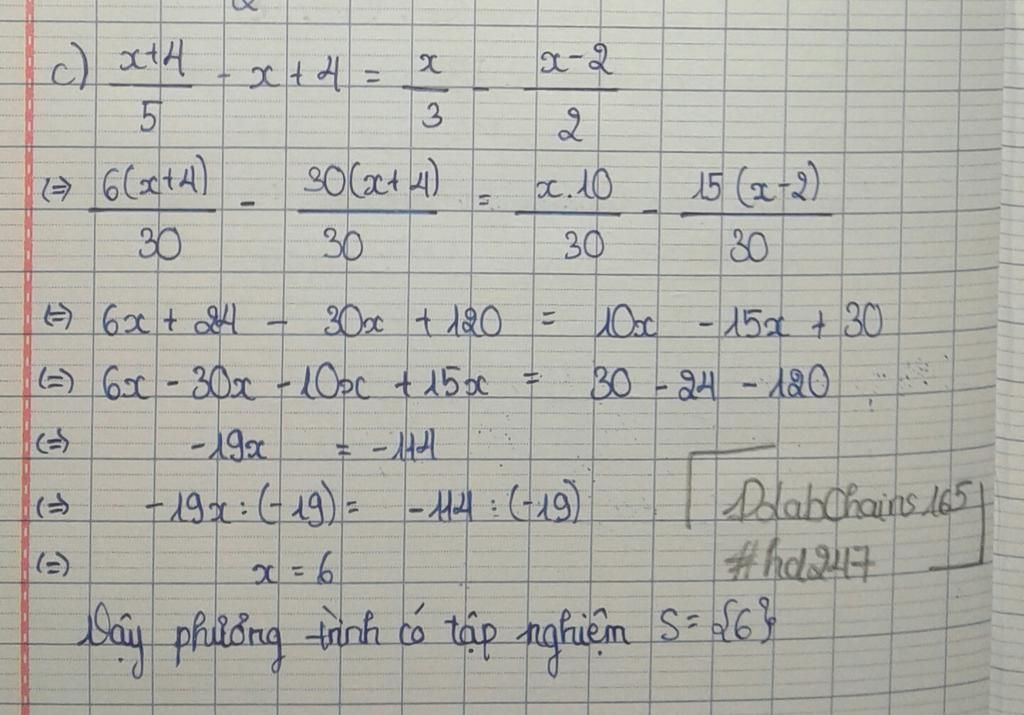 c) (x+4)/5 - x + 4 = x/3 - (x-2)/2
(=) 6(x+4)/30 - 30(x+4)/30 = x.10/30 - 15(x-2)/30
(=) 6x + 24 - 30x + 120 = 10x - 15x + 30
(=) 6x - 30x - 10x + 15x = 30 - 24 - 120
(=) -19x = -114
(=) -19x : (-19) = -114 : (-19)
(=) x = 6
#hd247
Vậy phương trình có tập nghiệm S = {6}